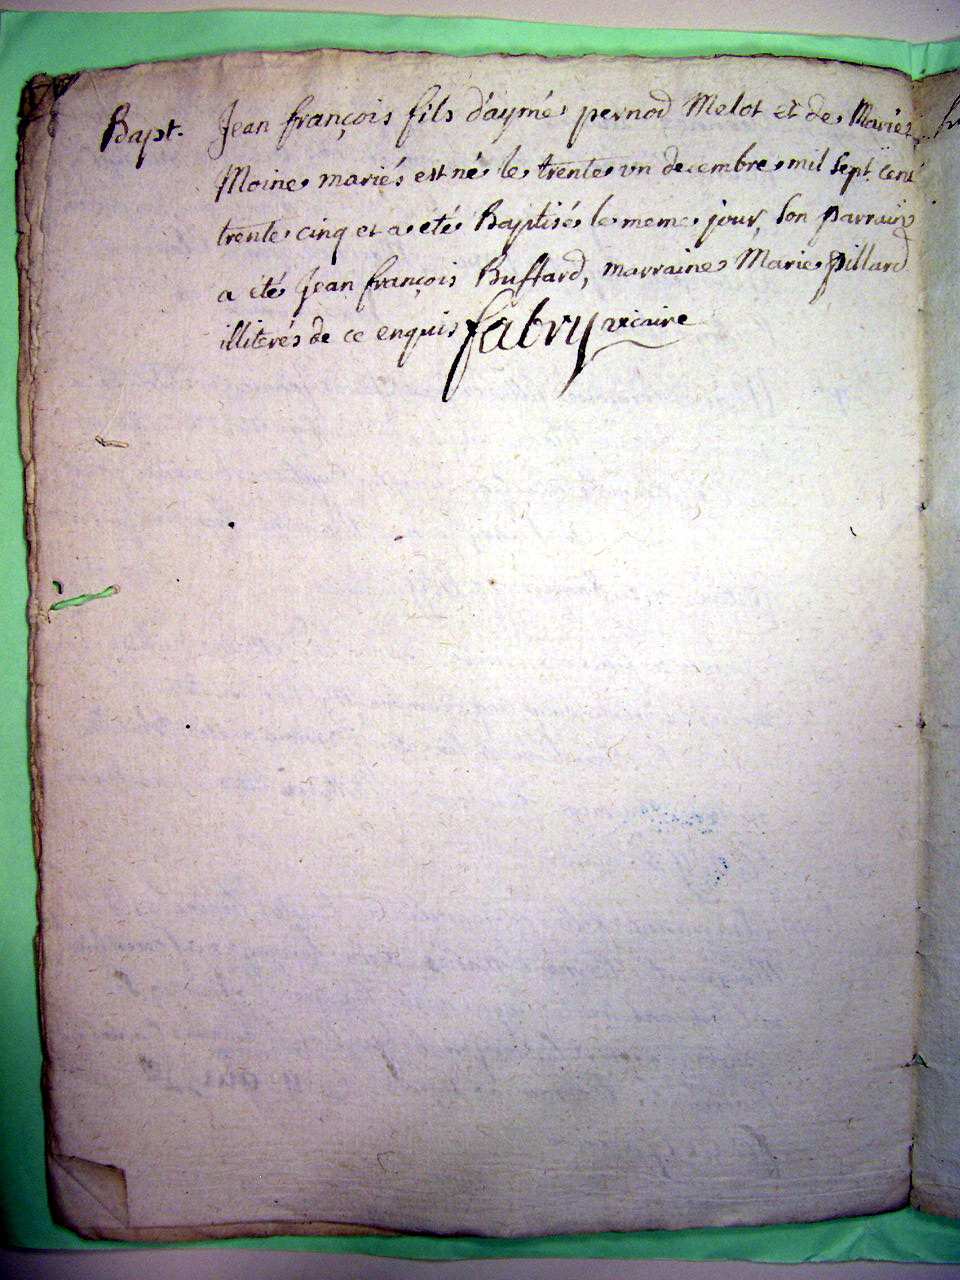 Bapt. Jean françois fils d'aymé pernod Melot et de Marie
Moine mariés est né le trente un decembre mil sept cent
trente cinq et a eté Baptisé le meme jour, son parrain
a été Jean françois Buffard, marraine Marie pillard
illiterés de ce enquis fabry vicaire